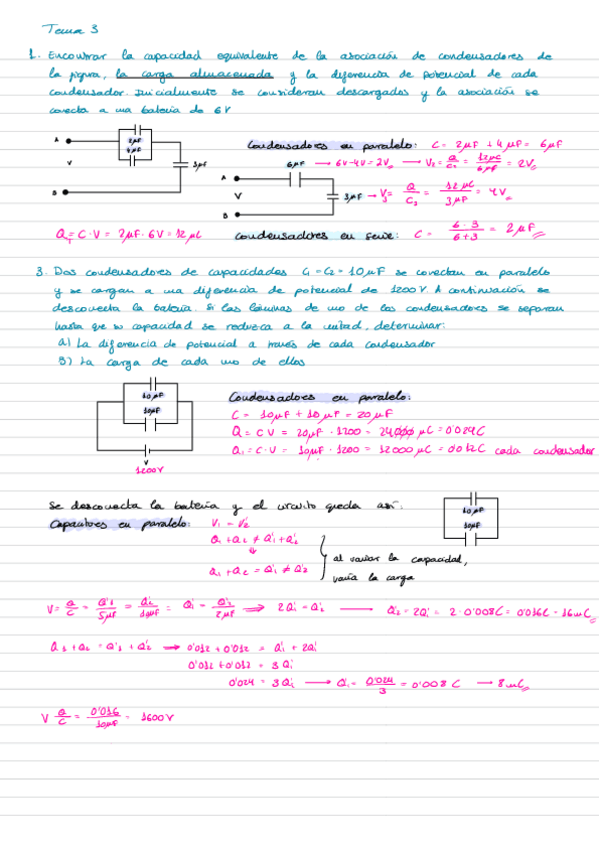 Tema 3
1. Encontrar la capacidad equivalente de la asociación de condensadores de
la figura, la carga almacenada y la diferencia de potencial de cada
condensador. Inicialmente se consideran descargados y la asociación se
conecta a una batería de 6V
A
2μF
4μF
V
3μF
B
Condensadores en paralelo: C = 2μF + 4μF = 6μF
A
6μF → 6V-4V = 2V → V₂ = Q/C₁ = 12μC/6μF = 2V
V
3μF → V₃ = Q/C₃ = 12μC/3μF = 4V
B
Q_T = C·V = 2μF·6V = 12μC
condensadores en serie: C = 6·3/6+3 = 2μF
3. Dos condensadores de capacidades C₁=C₂=10μF se conectan en paralelo
y se cargan a una diferencia de potencial de 1200V. A continuación se
desconecta la batería. Si las láminas de uno de los condensadores se separan
hasta que su capacidad se reduzca a la mitad, determinar:
a) La diferencia de potencial a través de cada condensador
B) La carga de cada uno de ellos
10μF
10μF
V
1200V
Condensadores en paralelo:
C = 10μF + 10μF = 20μF
Q = C·V = 20μF · 1200 = 24000 μC = 0'024C
Q₁ = C·V = 10μF · 1200 = 12000 μC = 0'012C cada condensador
Se desconecta la batería y el circuito queda así:
10μF
10μF
Capacitores en paralelo: V₁ = V₂'
Q₁+Q₂ ≠ Q₁'+Q₂'
Q₁+Q₂ = Q₁' ≠ Q₂'
al variar la capacidad,
varía la carga
V = Q/C = Q'₁/5μF = Q'₂/10μF = Q'₁ = Q'₂/2μF → 2Q'₁ = Q'₂ → Q'₂ = 2Q'₁ = 2·0'008C = 0'016C = 16mC
Q₁+Q₂ = Q'₁+Q'₂ → 0'012+0'012 = Q'₁ + 2Q'₁
0'012+0'012 = 3Q'₁
0'024 = 3Q'₁ → Q'₁ = 0'024/3 = 0'008 C → 8mC
V Q/C = 0'016/10μF = 1600V